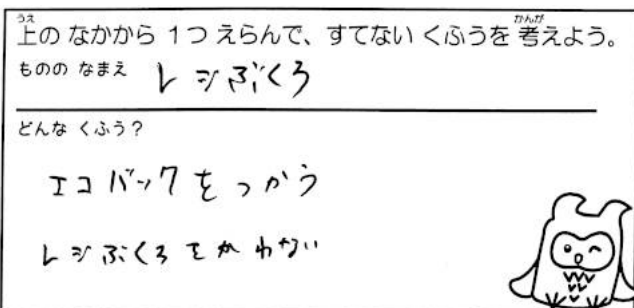 上のなかから 1つ えらんで、すてない くふうを 考えよう。
ものの なまえ レジぶくろ
どんな くふう?
エコバックをつかう
レジぶくろをかわない